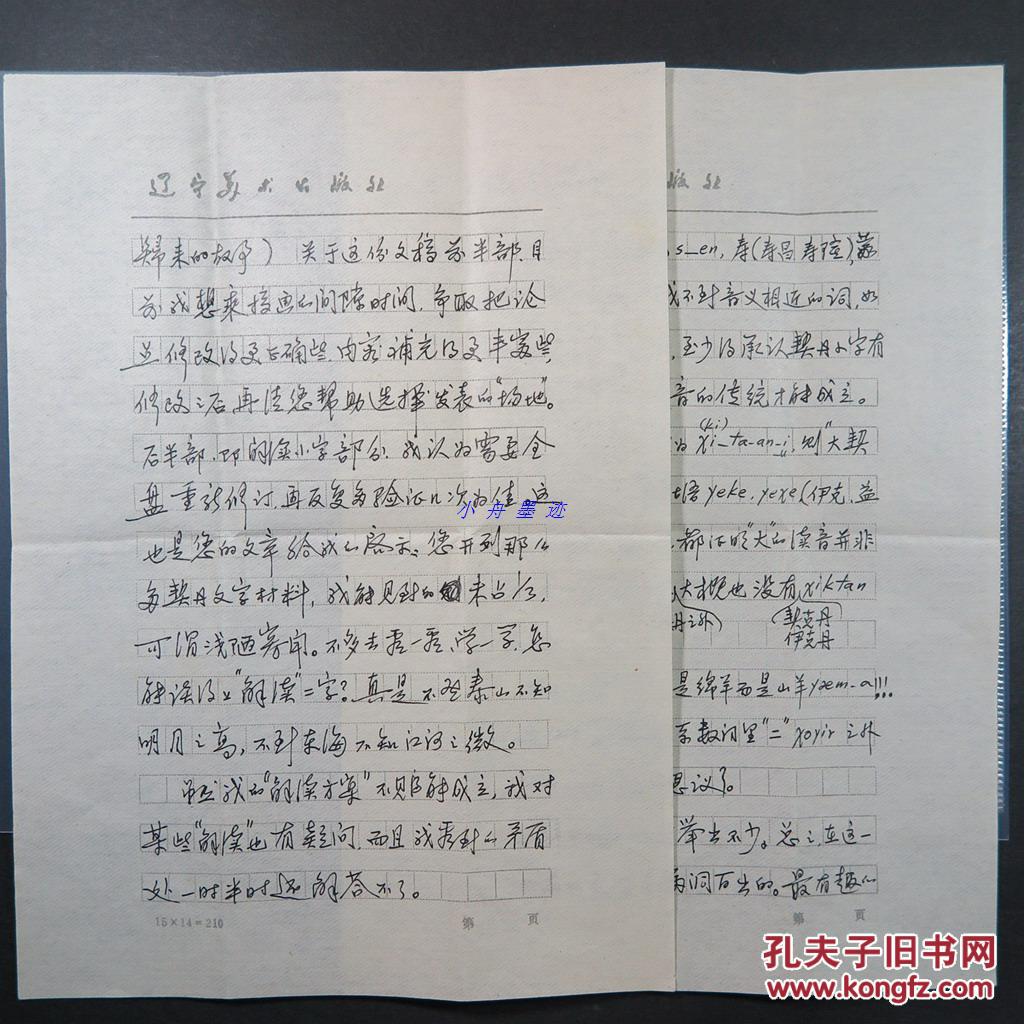 辽宁美术出版社
归来的故事） 关于这份文稿前半部，目
前我想乘接画的间隙时间，争取把论
点修改得更正确些，内容补充得更丰富些，
修改之后再请您帮助选择发表的“场地”。
后半部，即解读小字部分，我认为需要全
盘重新修订，再反复多验证几次为佳，这
也是您的文章给我的启示。您开列那么
多契丹文字材料，我能见到的未占1/3，
可谓浅陋寡闻。不多去看一看、学一学，怎
能谈得上“解读”二字？真是不登泰山不知
明月之高，不到东海不知江河之微。
虽然我的“解读方案”不见能成立，我对
某些“解读”也有疑问，而且我看到的矛盾
处一时半时还解答不了。
15×14=210
第 页
小舟墨迹
版社
s_en，寿（寿昌寿隆），
找不到音义相近的词，如
，至少得承认契丹小字有
音的传统才能成立。
(ki)
为xi_ta-an_i，则“大契
语yeke，yexe（伊克，益
都证明“大”的读音并非
大概也没有xiktan
丹之外） （契克丹
伊克丹
是绵羊而是山羊yaem-a!!!
系数词里“二”xoyir之外
思议了。
举出不少。总之，在这一
漏洞百出的。最有趣的
第 页
孔夫子旧书网
www.kongfz.com